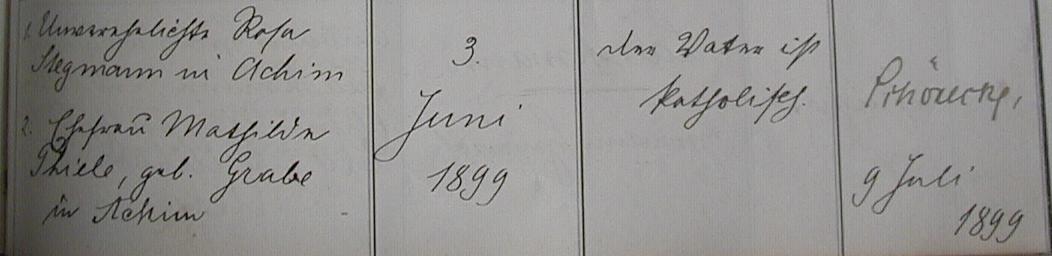 1. Unverehelichte Rosa
Stegmann in Achim
2. Ehefrau Mathilde
Thiele, geb. Grabe
in Achim
3.
Juni
1899
der Vater ist
katholisch.
9 Juli
1899